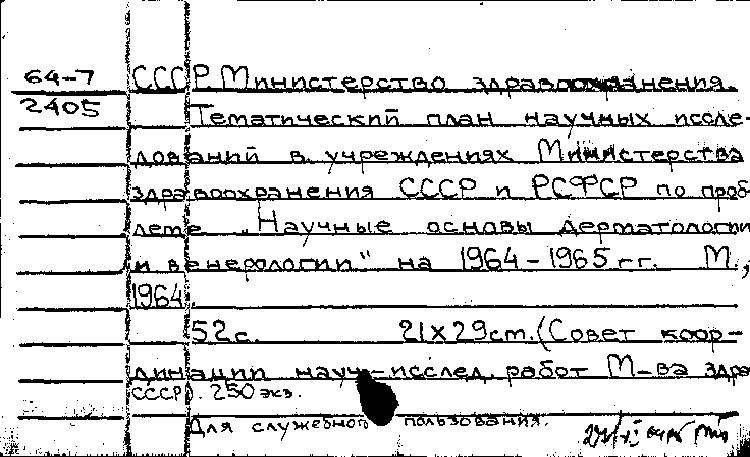 64-7 СССР Министерство здравоохранения.
2405 Тематический план научных иссле-
дований в учреждениях Министерства
здравоохранения СССР и РСФСР по проб
леме „Научные основы дерматологии
и венерологии" на 1964-1965 гг. М.,
1964.
52 с. 21x29 cm. (Совет коор-
динации науч-исслед. работ М-ва здра
СССР). 250 экз.
Для служебного пользования.